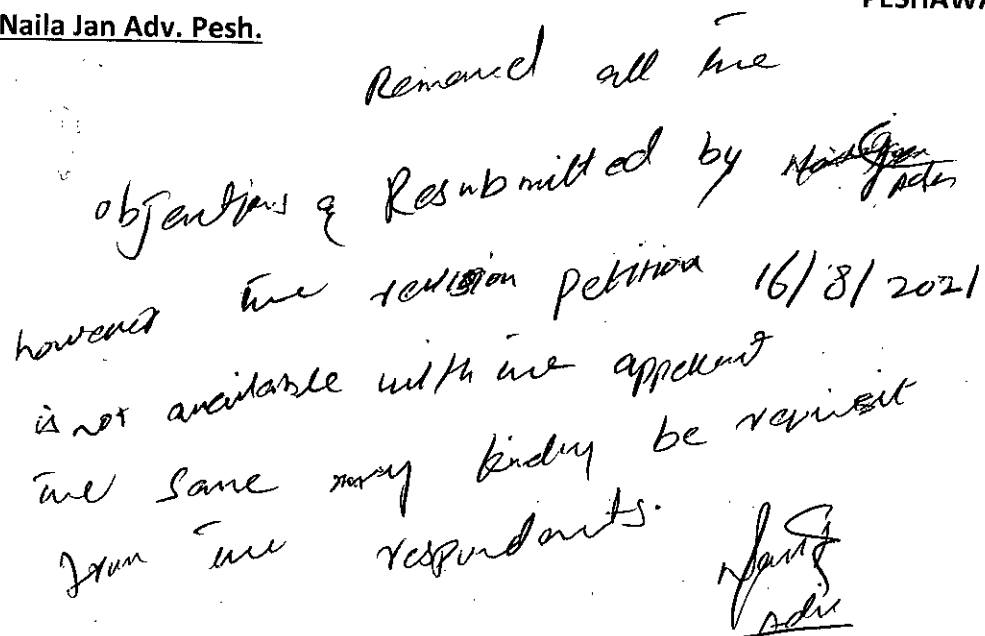 PESHAWA
Naila Jan Adv. Pesh.
Removed all the
objections & Resubmitted by
however the revision petition 16/8/2021
is not available with the appellant
the same may kindly be requisit
from the respondents.
Adv